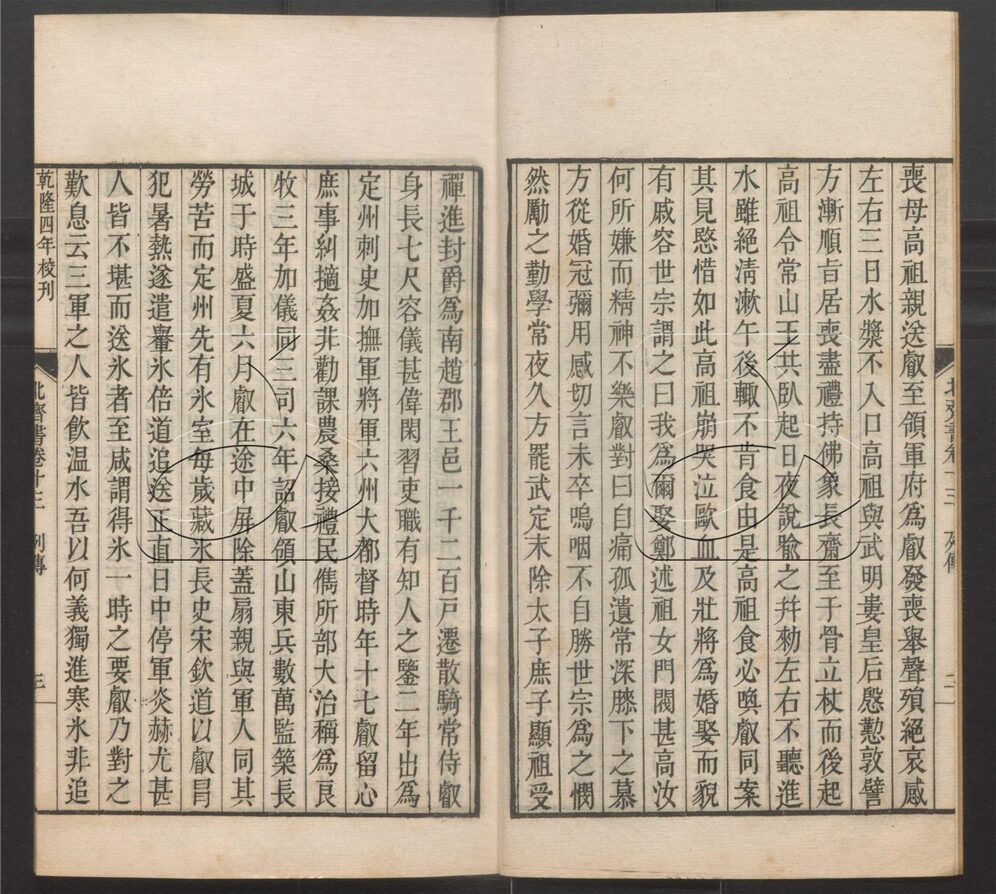 喪母高祖親送叡至領軍府爲叡發喪舉聲殞絕哀感
左右三日水漿不入口高祖與武明婁皇后慇懃敦譬
方漸順旨居喪盡禮持佛象長齋至于骨立杖而後起
高祖令常山王共臥起日夜說喻之幷勑左右不聽進
水雖絕清漱午後輒不肯食由是高祖食必喚叡同案
其見愍惜如此高祖崩哭泣歐血及壯將爲婚娶而貌
有戚容世宗謂之曰我爲爾娶鄭述祖女門閥甚高汝
何所嫌而精神不樂叡對曰自痛孤遺常深膝下之慕
方從婚冠彌用感切言未卒嗚咽不自勝世宗爲之憫
然勵之勤學常夜久方罷武定末除太子庶子顯祖受
北齊書卷十三 列傳 二
禪進封爵爲南趙郡王邑一千二百戸遷散騎常侍叡
身長七尺容儀甚偉閑習吏職有知人之鑒二年出爲
定州刺史加撫軍將軍六州大都督時年十七叡留心
庶事糾擿姦非勸課農桑接禮民儁所部大治稱爲良
牧三年加儀同三司六年詔叡領山東兵數萬監築長
城于時盛夏六月叡在途中屏除蓋扇親與軍人同其
勞苦而定州先有氷室每歲藏氷長史宋欽道以叡冒
犯暑熱遂遣轝氷倍道追送正直日中停軍炎赫尤甚
人皆不堪而送氷者至咸謂得氷一時之要叡乃對之
歎息云三軍之人皆飲温水吾以何義獨進寒氷非追
乾隆四年校刊
北齊書卷十三 列傳 三